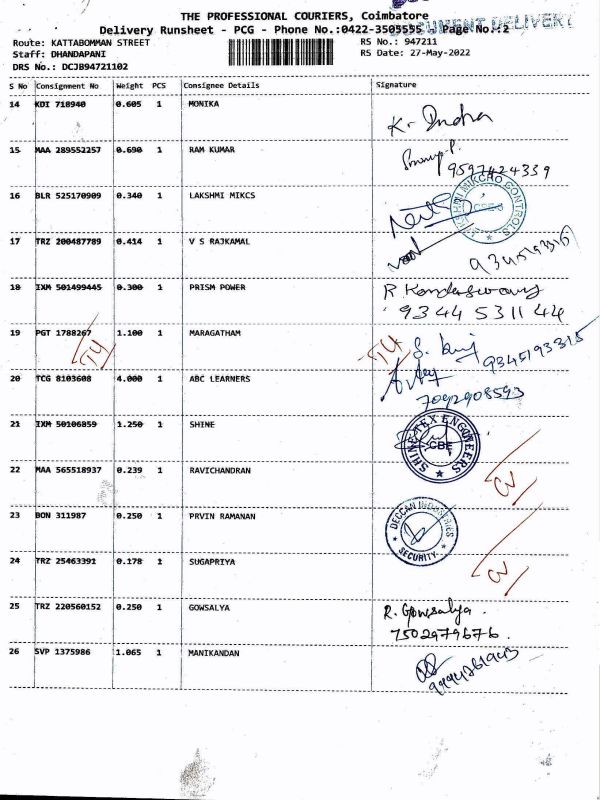 THE PROFESSIONAL COURIERS, Coimbatore
DOCUMENT DELIVERY
Delivery Runsheet - PCG - Phone No.:0422-3505555 Page No.:2
Route: KATTABOMMAN STREET RS No.: 947211
Staff: DHANDAPANI RS Date: 27-May-2022
DRS No.: DCJB94721102
S No Consignment No Weight PCS Consignee Details Signature
14 KDI 718940 0.605 1 MONIKA K. Indra
15 MAA 289552257 0.690 1 RAM KUMAR 9597424339
16 BLR 525170909 0.340 1 LAKSHMI MIKCS
LAKSHMI MIKCRO CONTROLS CBE-3
17 TRZ 200487789 0.414 1 V S RAJKAMAL
18 IXM 501499445 0.300 1 PRISM POWER R. Kandaswamy
9344531144
19 PGT 1788267 1.100 1 MARAGATHAM 9345193315
20 TCG 8103608 4.000 1 ABC LEARNERS
7092908593
21 IXM 50106859 1.250 1 SHINE
SHINE TEX ENGINEERS CBE
22 MAA 565518937 0.239 1 RAVICHANDRAN
23 BON 311987 0.250 1 PRVIN RAMANAN
DECCAN INDUSTRIES SECURITY.
24 TRZ 25463391 0.178 1 SUGAPRIYA
25 TRZ 220560152 0.250 1 GOWSALYA R. Gowsalya.
7502979676.
26 SVP 1375986 1.065 1 MANIKANDAN